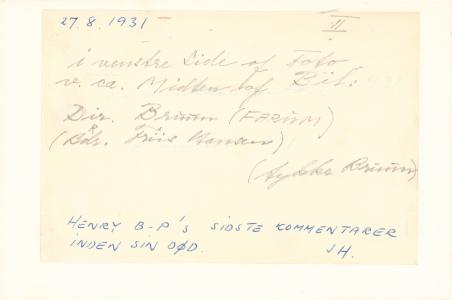 27.8.1931
II
i venstre Side af Foto
v. ca. Midten af Bil:
Dir. Bruun (FARUM)
( Friis Hansen)
( Bruun)
HENRY B-P's SIDSTE KOMMENTARER
INDEN SIN DØD. JH.